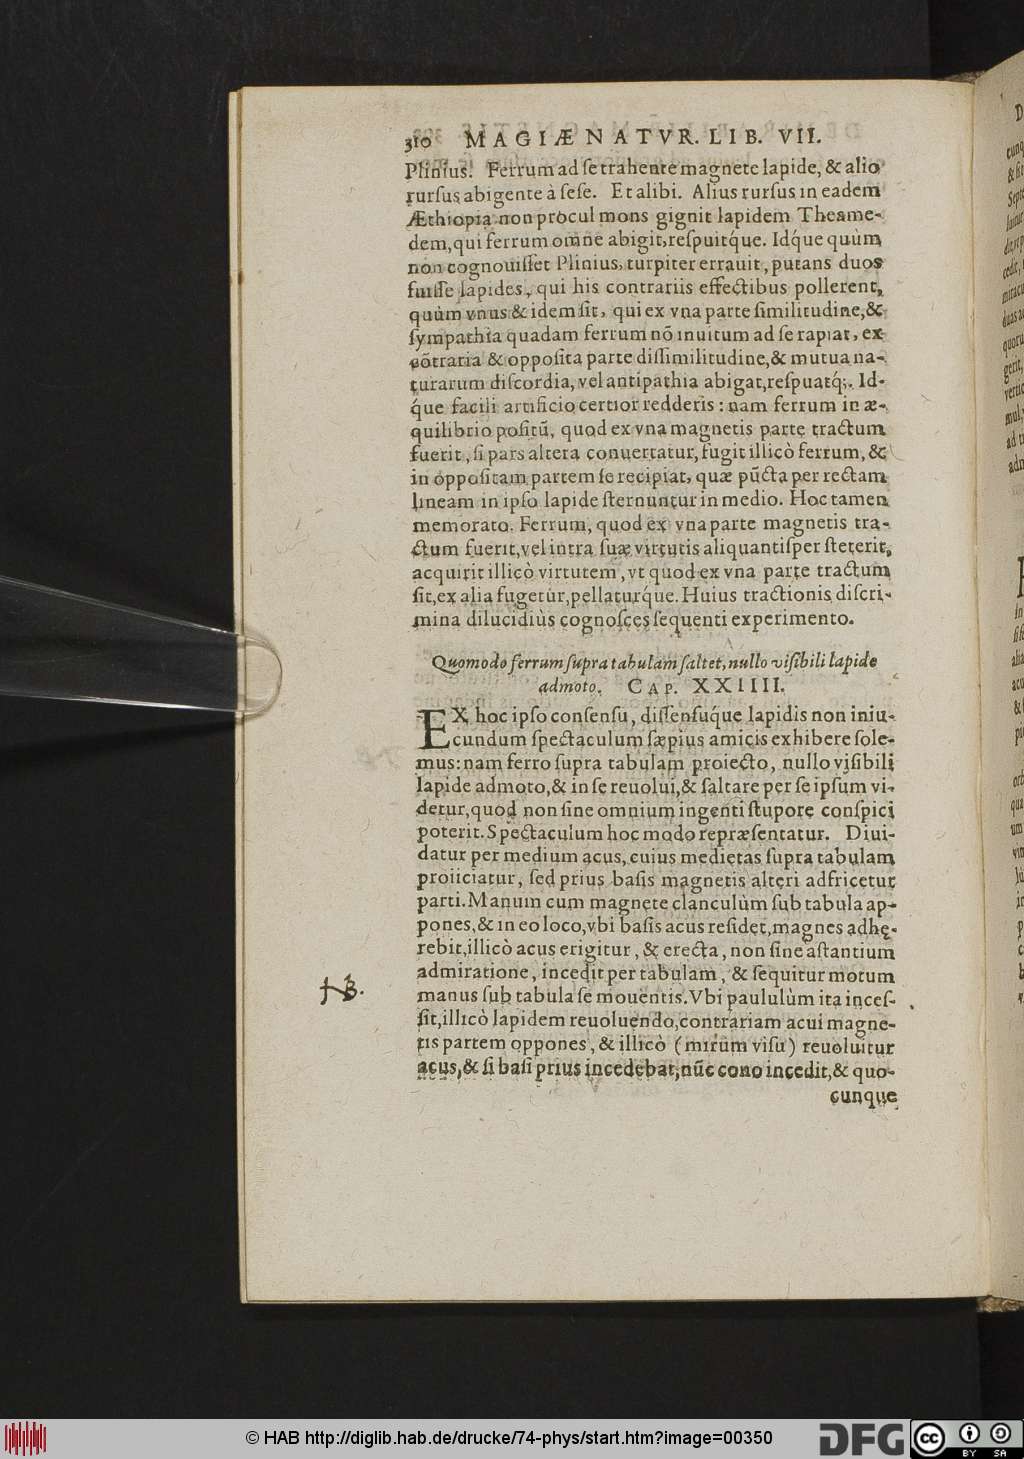 310 MAGIÆ NATVR. LIB. VII.
Plinius. Ferrum ad ſe trahente magnete lapide, & alio
rurſus abigente à ſeſe. Et alibi. Alius rurſus in eadem
Æthiopia non procul mons gignit lapidem Theame-
dem, qui ferrum omne abigit, reſpuitq́ue. Idq́ue quùm
non cognouiſſet Plinius, turpiter errauit, putans duos
fuiſſe lapides, qui his contrariis effectibus pollerent,
quùm vnus & idem ſit, qui ex vna parte ſimilitudine, &
ſympathia quadam ferrum nõ inuitum ad ſe rapiat, ex
cõtraria & oppoſita parte diſſimilitudine, & mutua na-
turarum diſcordia, vel antipathia abigat, reſpuatq́;. Id-
q́ue facili artificio certior redderis: nam ferrum in æ-
quilibrio poſitũ, quod ex vna magnetis parte tractum
fuerit, ſi pars altera conuertatur, fugit illicò ferrum, &
in oppoſitam partem ſe recipiat, quæ pũcta per rectam
lineam in ipſo lapide ſternuntur in medio. Hoc tamen
memorato. Ferrum, quod ex vna parte magnetis tra-
ctum fuerit, vel intra ſuæ virtutis aliquantiſper ſteterit,
acquirit illicò virtutem, vt quod ex vna parte tractum
ſit, ex alia fugetur, pellaturq́ue. Huius tractionis diſcri-
mina dilucidiùs cognoſces ſequenti experimento.
Quomodo ferrum ſupra tabulam ſaltet, nullo viſibili lapide
admoto. CAP. XXIIII.
EX hoc ipſo conſenſu, diſſenſuq́ue lapidis non iniu-
cundum ſpectaculum ſæpius amicis exhibere ſole-
mus: nam ferro ſupra tabulam proiecto, nullo viſibili
lapide admoto, & in ſe reuolui, & ſaltare per ſe ipſum vi-
detur, quod non ſine omnium ingenti ſtupore conſpici
poterit. Spectaculum hoc modo repræſentatur. Diui-
datur per medium acus, cuius medietas ſupra tabulam
proiiciatur, ſed prius baſis magnetis alteri adfricetur
parti. Manum cum magnete clanculùm ſub tabula ap-
pones, & in eo loco, vbi baſis acus reſidet, magnes adhę-
rebit, illicò acus erigitur, & erecta, non ſine aſtantium
admiratione, incedit per tabulam, & ſequitur motum
NB.
manus ſub tabula ſe mouentis. Vbi paululùm ita inceſ-
ſit, illicò lapidem reuoluendo, contrariam acui magne-
tis partem oppones, & illicò (mirum viſu) reuoluitur
acus, & ſi baſi prius incedebat, nũc cono incedit, & quo-
cunque
© HAB http://diglib.hab.de/drucke/74-phys/start.htm?image=00350
DFG
cc BY SA